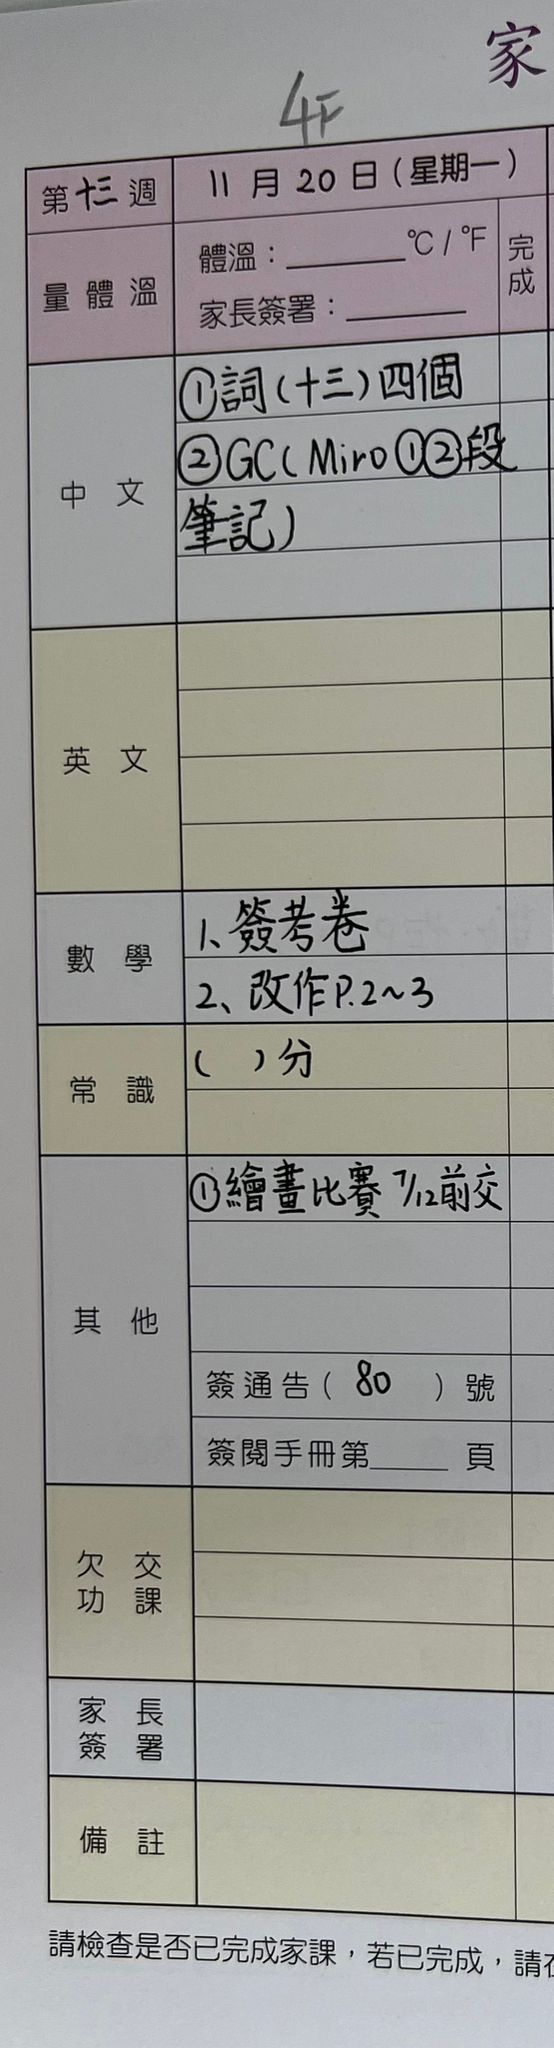 家
4F
第十三週 11月20日(星期一)
量體溫 體溫：______°C / °F 完成
家長簽署：______
中文 ①詞(十三)四個
②GC(Miro①②段
筆記)
英文
數學 1、簽考卷
2、改作P.2~3
常識 (  )分
其他 ①繪畫比賽 7/12前交
簽通告( 80 )號
簽閱手冊第____頁
欠交功課
家長簽署
備註
請檢查是否已完成家課，若已完成，請在